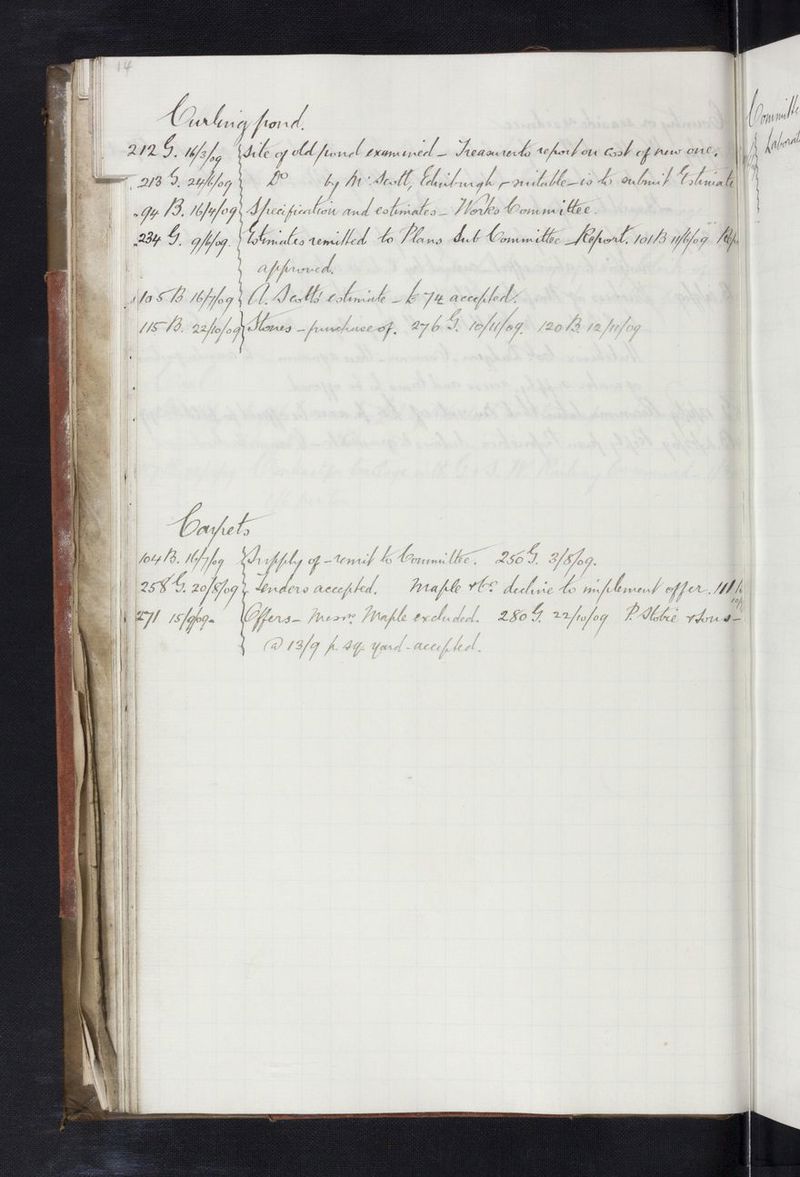 14
Curling pond.
212 G. 16/3/09 Site of old pond examined – Treasurer to report on cost of new one.
213 G. 24/4/09 Do by Mr Scott, Edinburgh suitable – is to submit Estimate
94 B. 16/4/09 Specification and estimates – Works Committee.
234 G. 9/6/09 Estimates remitted to Plans Sub Committee – Report. 101 B 11/6/09
approved.
105 B 16/7/09 A. Scotts estimate – £74 accepted.
115 B. 22/10/09 Stones – purchase of. 276 G. 10/11/09. 120 B. 12/11/09
Carpets
104 B. 16/7/09 Supply of – remit to Committee. 250 G. 3/8/09.
258 G. 20/8/09 Tenders accepted. Maple & Co decline to implement offer. 111
271 15/9/09. Offers – Messrs Maple excluded. 280 G. 22/10/09 P. Stobie & Sons –
@ 13/9 p. sq. yard – accepted.
Committe